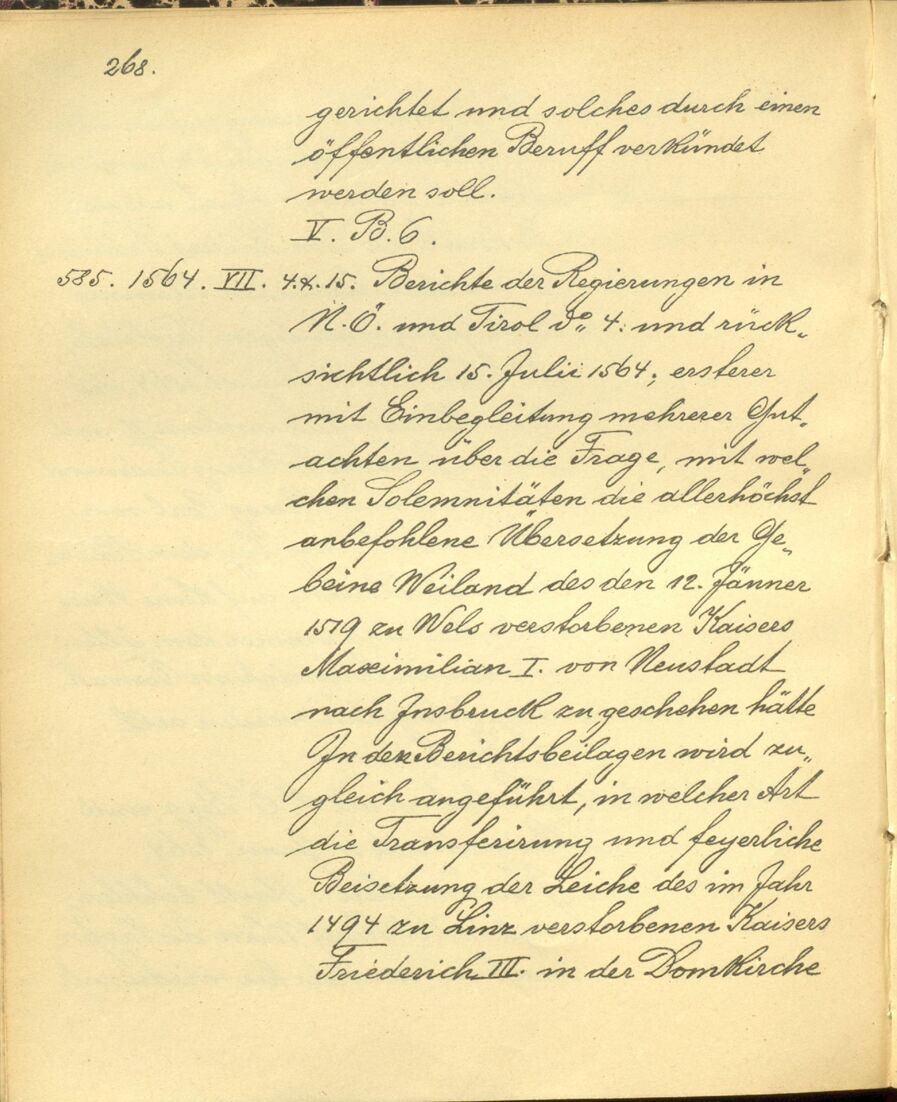 268.
gerichtet und solches durch einen
öffentlichen Beruff verkündet
werden soll.
V. B. 6.
585. 1564. VII. 4. & 15. Berichte der Regierungen in
N.Ö. und Tirol do 4. und rück„
sichtlich 15. Julii 1564; ersterer
mit Einbegleitung mehrerer Gut„
achten über die Frage, mit wel„
chen Solemnitäten die allerhöchst
anbefohlene Übersetzung der Ge„
beine Weiland des den 12. Jänner
1519 zu Wels verstorbenen Kaisers
Maximilian I. von Neustadt
nach Insbruck zu geschehen hätte
In den Berichtsbeilagen wird zu„
gleich angeführt, in welcher Art
die Transferirung und feyerliche
Beisetzung der Leiche des im Jahr
1494 zu Linz verstorbenen Kaisers
Friederich III. in der Domkirche